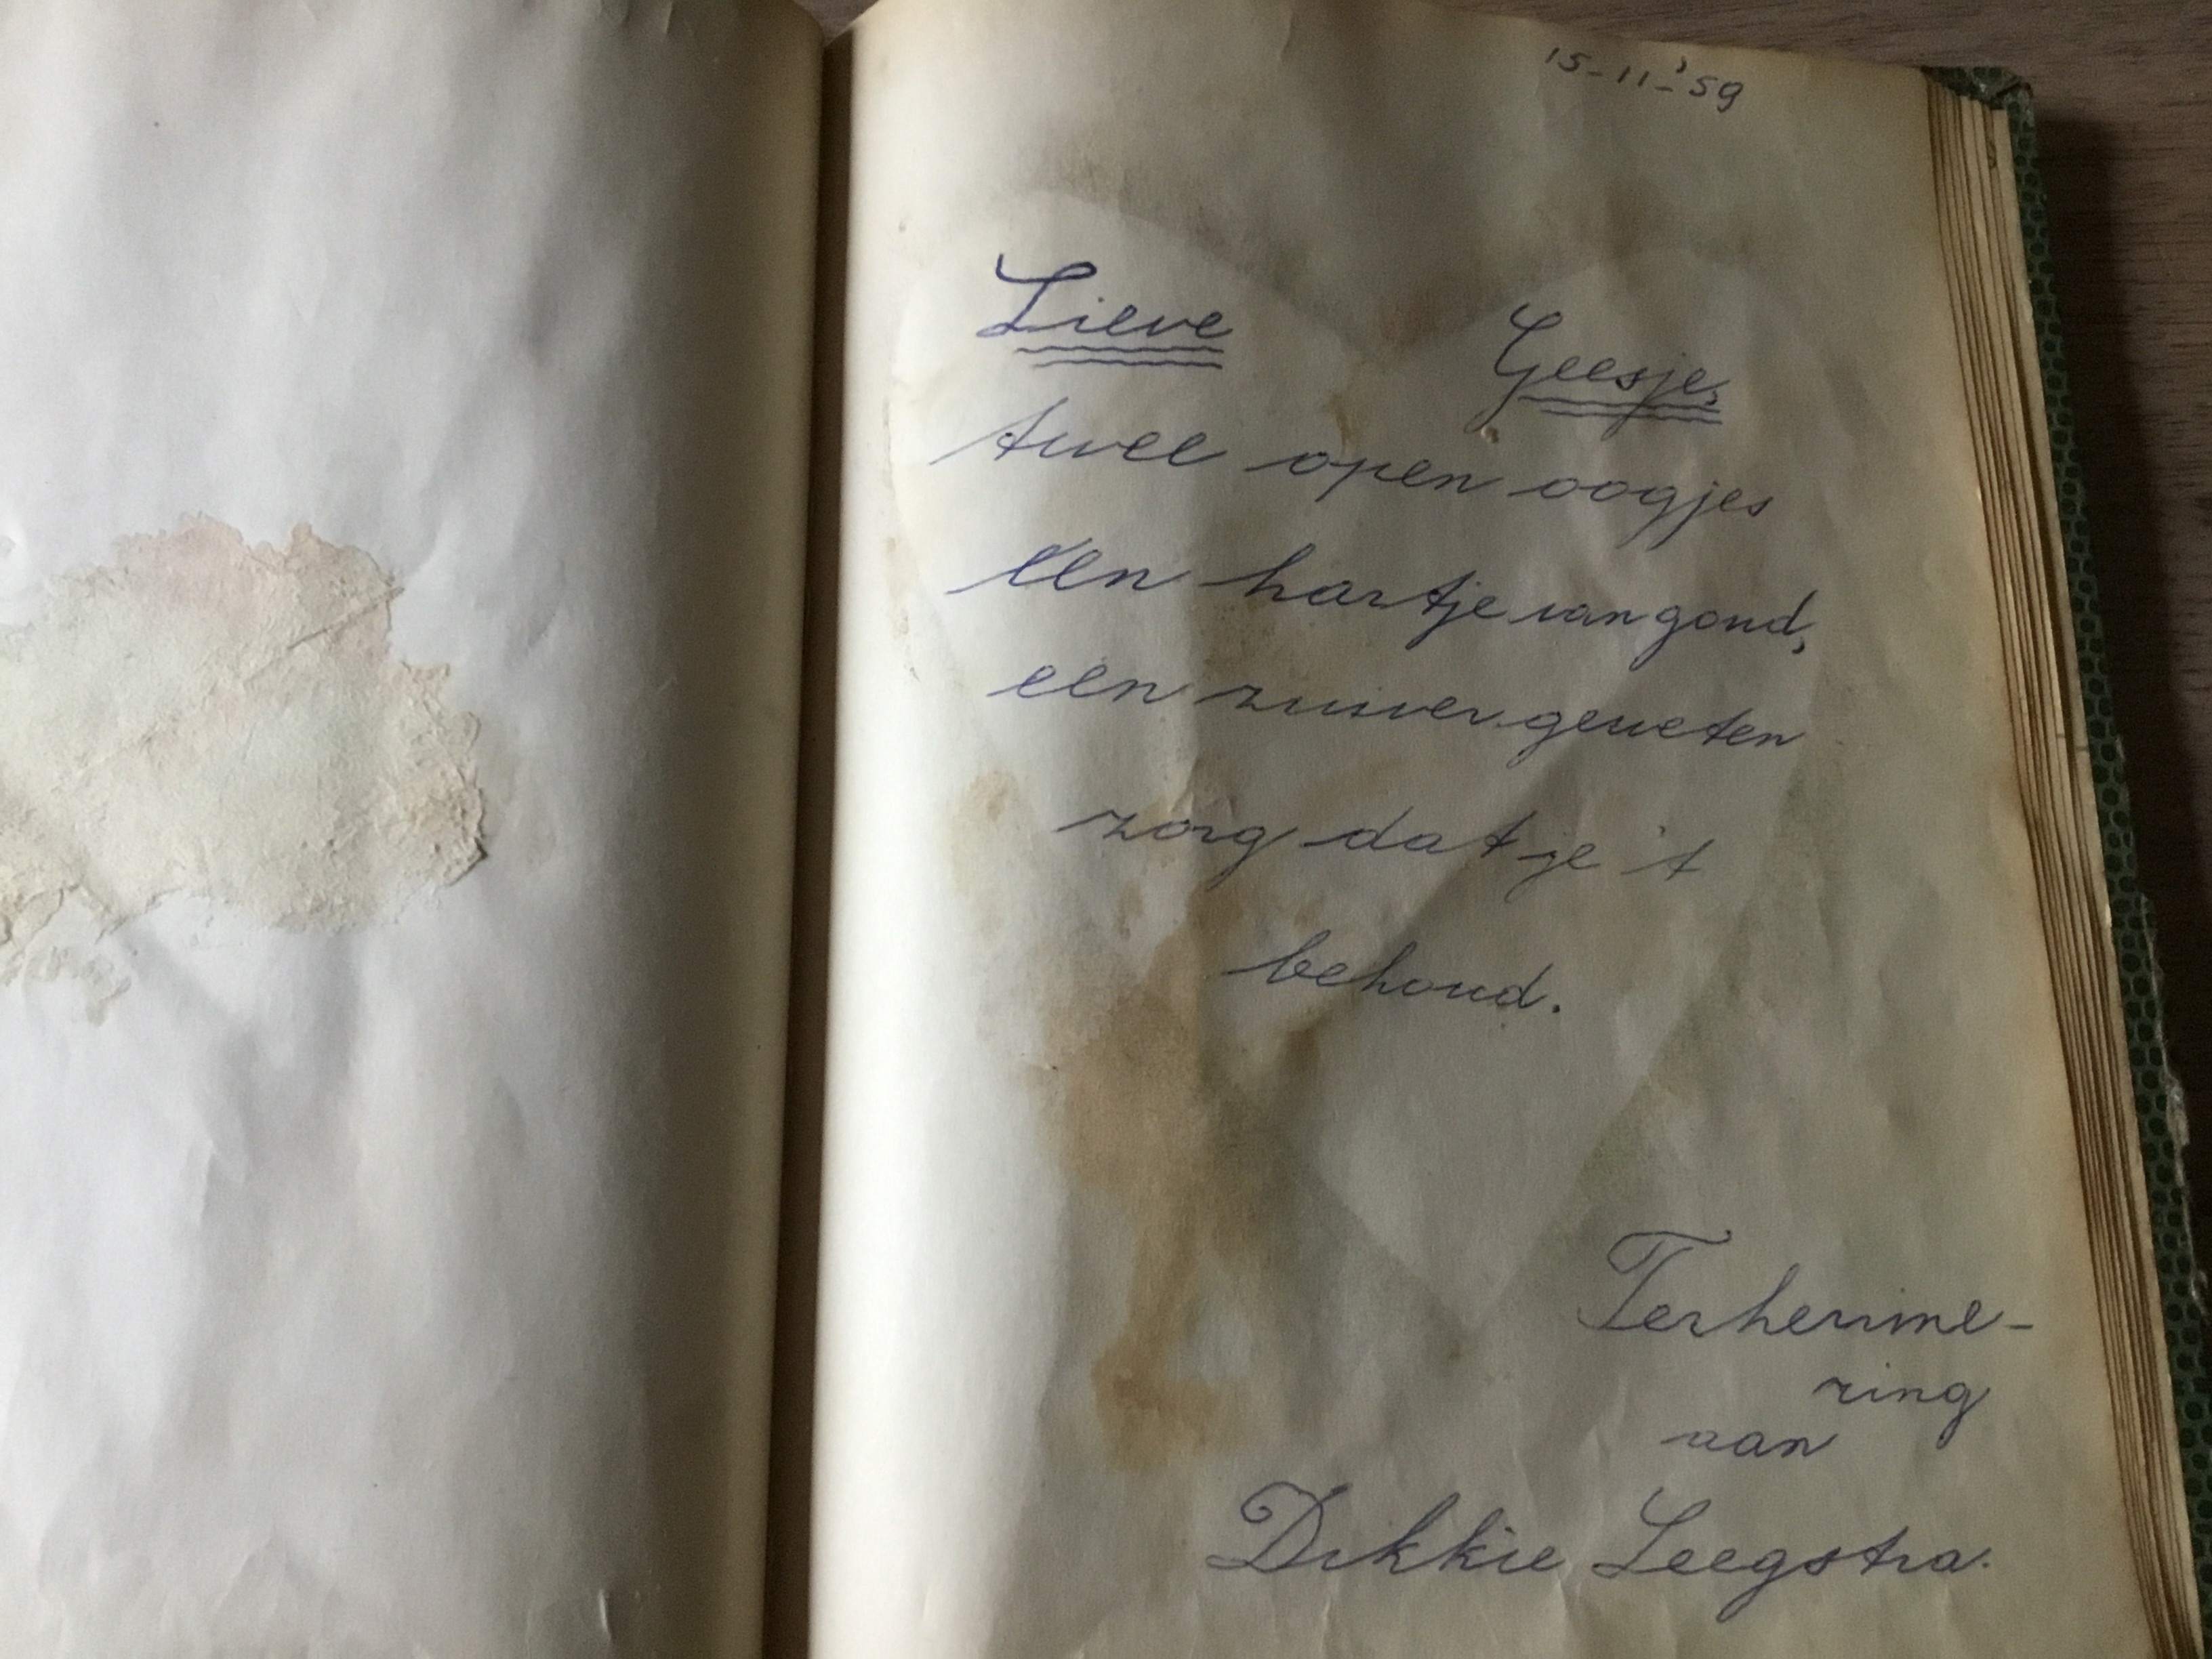 15-11-'59
Lieve Geesje,
twee open oogjes
één hartje van goud,
een zuiver geweten
zorg dat je 't
behoud.
Ter herinne-
ring
van
Dikkie Leegstra.